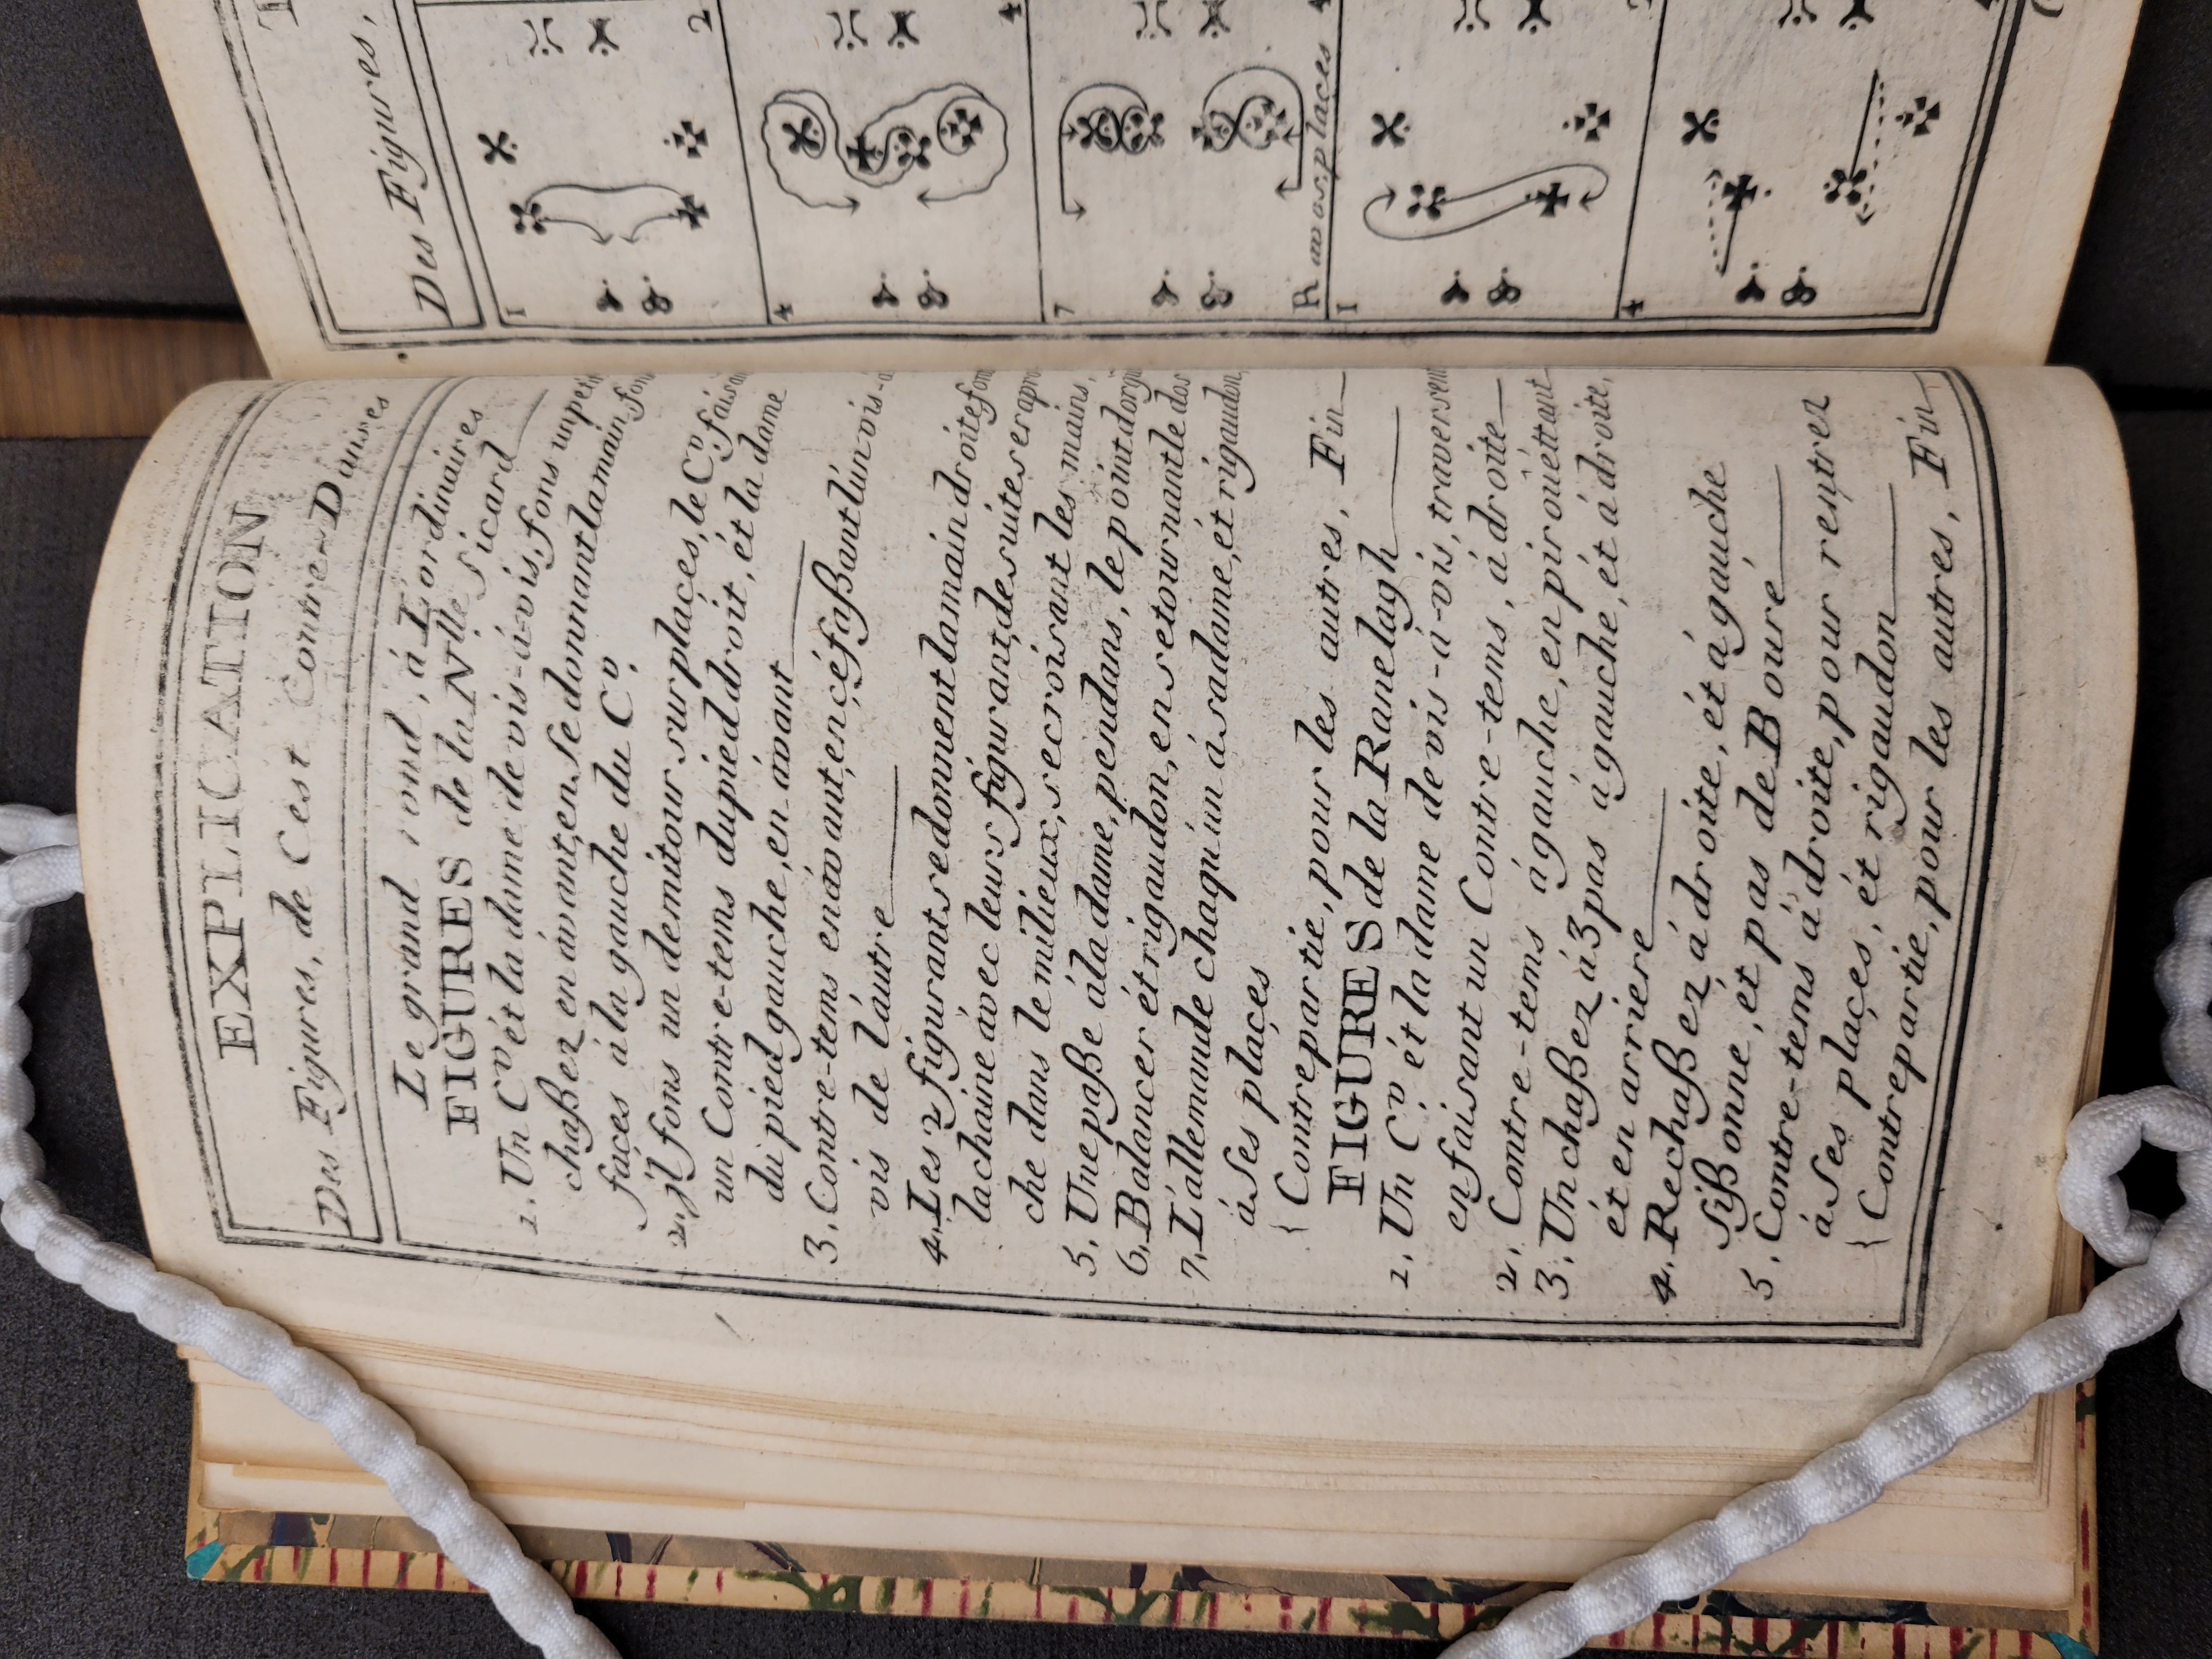 EXPLICATION
Des Figures, de Ces 2 Contre-Danses
Le grand rond, á L'ordinaires
FIGURES de la N.lle Sicard
1. Un C.v ét la dame de vis-á-vis, fons un petit
chaßez en ávant, en se donnant la main, fon
façes á la gauche du C.v
2. jl fons un demitour sur plaçes, le C.v faisa
un Contre-tems du pied droit, ét la dame
du pied gauche, en ávant
3. Contre-tems en ávant, en çé faßant l'ún vis-á
vis de l'áutre
4. Les 2 figurants se donnent la main droite fon
la chaine ávec leurs figurant, de suite se rapro
che dans le milieux, se croisant les mains,
5. Une paße á la dame, pendans, le point d'orgu
6. Balancer ét rigaudon, en se tournant le dos
7. L'állemande chaqu'ún á sa dame, ét rigaudon,
á Ses plaçes
{ Contrepartie, pour les autres, Fin
FIGURES de la Ranelagh
1. Un C.v ét la dame de vis-á-vis, traversent
en faisant un Contre-tems, á droite
2. Contre-tems á gauche, en pirouéttant
3. Un chaßez á 3 pas á gauche, ét á droite,
ét en arriere
4. Rechaßez á droite, ét á gauche
Sißonne, ét pas de Bouré
5. Contre-tems á droite, pour rentrer
á Ses plaçes, ét rigaudon
{ Contrepartie, pour les autres, Fin
Des Figures,
1
2
4
4
7
R aux os: places
4
1
4